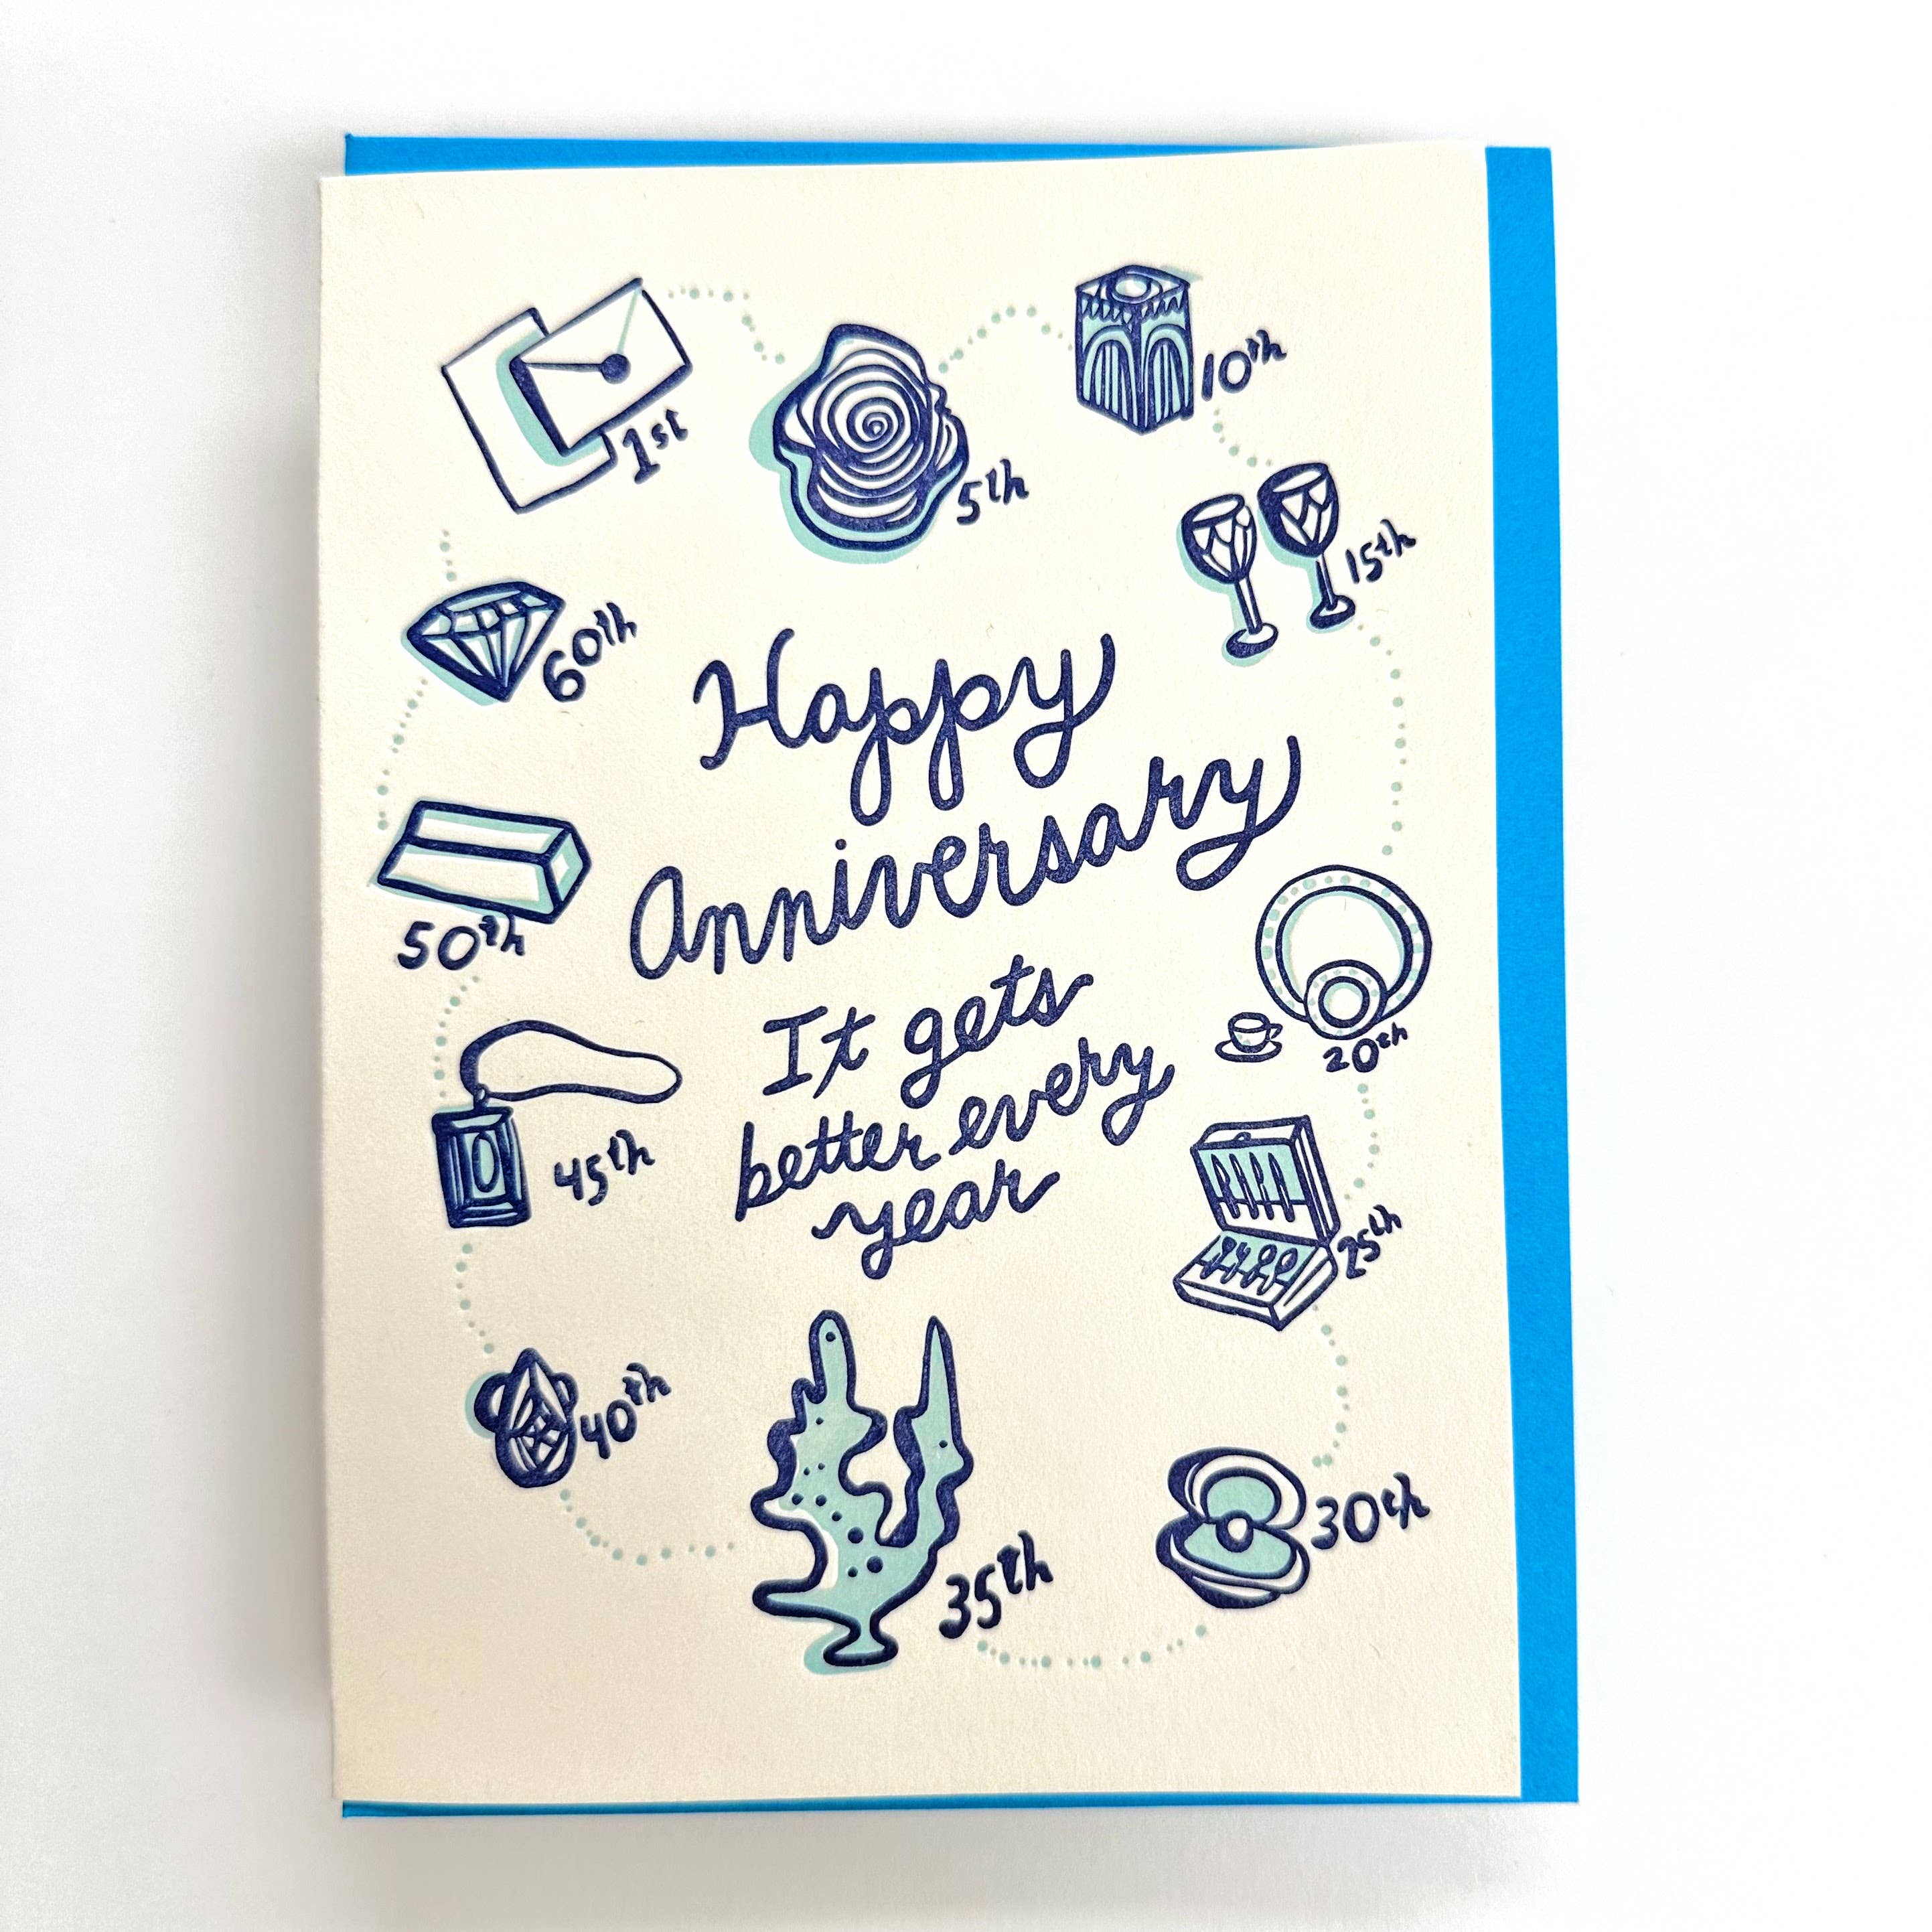 1st
5th
10th
15th
60th
Happy
Anniversary
50th
It gets
better every
year
20th
45th
25th
40th
30th
35th